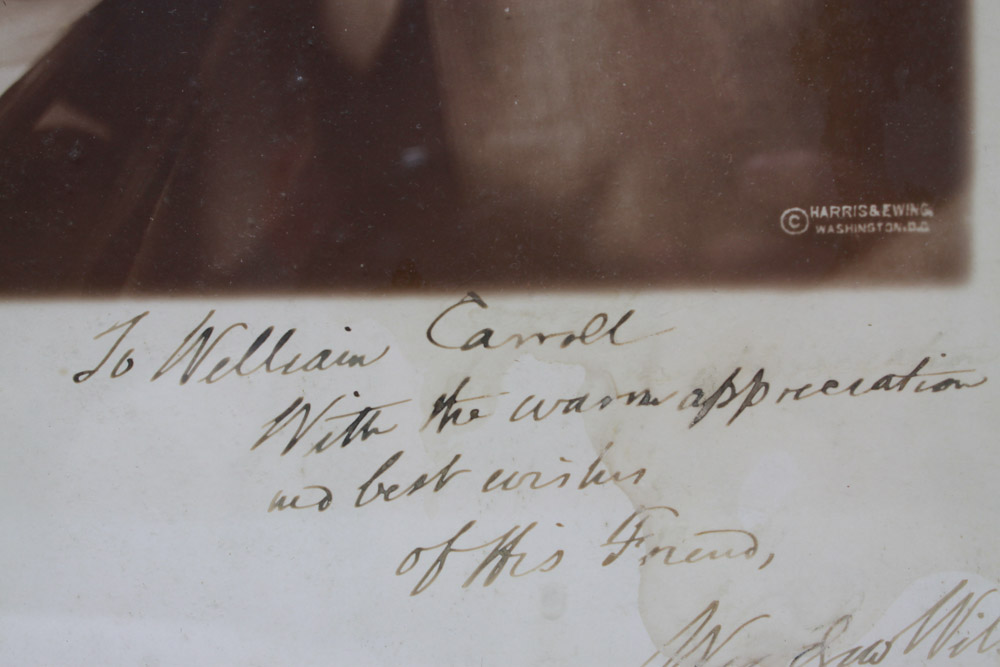 © HARRIS & EWING
WASHINGTON, D.C.
To William Carroll
With the warm appreciation
and best wishes
of His Friend,